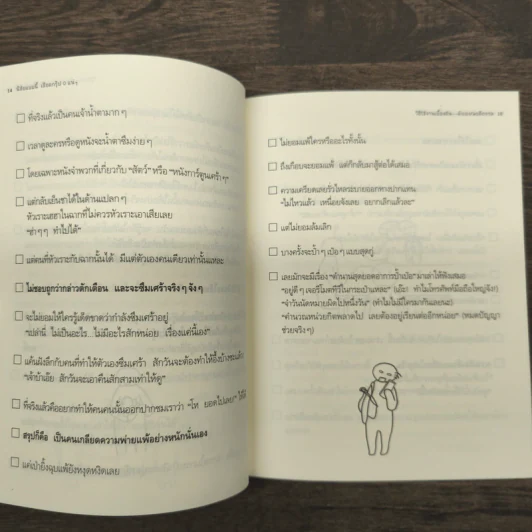 14
ที่จริงแล้วเป็นคนเจ้าน้ำตามาก ๆ
เวลาดูละครหรือดูหนังจะน้ำตาซึมง่าย ๆ
โดยเฉพาะหนังจำพวกที่เกี่ยวกับ “สัตว์” หรือ “หนังการ์ตูนเศร้า ๆ”
แต่กลับเย็นชาได้ในด้านแปลก ๆ
หัวเราะเฮฮาในฉากที่ไม่ควรหัวเราะเอาเสียเลย
“ฮ่า ๆ ๆ ทำไปได้”
แต่คนที่หัวเราะกับฉากนั้นได้ มีแต่ตัวเองคนเดียวเท่านั้นแหละ
ไม่ชอบถูกว่ากล่าวตักเตือน และจะซึมเศร้าจริง ๆ จัง ๆ
จะไม่ยอมให้ใครรู้เด็ดขาดว่ากำลังซึมเศร้าอยู่
“เปล่านี่ ไม่เป็นอะไร...ไม่มีอะไรสักหน่อย เรื่องแค่นี้เอง”
แค้นฝังลึกกับคนที่ทำให้ตัวเองซึมเศร้า สักวันจะต้องทำให้อึ้ง
“เจ้าบ้าเอ๊ย สักวันจะเอาคืนสักสามเท่าให้ดู”
ที่จริงแล้วคืออยากทำให้คนคนนั้นออกปากชมเราว่า “โห ยอดไปเลย”
สรุปก็คือ เป็นคนเกลียดความพ่ายแพ้อย่างหนักนั่นเอง
แค่เป่ายิ้งฉุบแพ้ยังหงุดหงิดเลย
15
ไม่ยอมแพ้ใครหรืออะไรทั้งนั้น
ถึงเกือบจะยอมแพ้ แต่ก็กลับมาสู้ต่อได้เสมอ
ความเครียดเลยรั่วไหลระบายออกทางปากแทน
“ไม่ไหวแล้ว เหนื่อยจังเลย อยากเลิกแล้วละ”
แต่ไม่ยอมล้มเลิก
บางครั้งจะป้ำ ๆ เป๋อ ๆ แบบสุดกู่
เลยมักจะมีเรื่อง “ตำนานสุดยอดอาการป้ำเป๋อ” มาเล่าให้ฟังเสมอ
“อยู่ดี ๆ เจอรีโมตทีวีในกระเป๋าแหละ” (เอ๊ะ ทำไมโทรศัพท์มือถือใหญ่จัง)
“จำวันนัดหมายผิดไปหนึ่งวัน” (ทำไมไม่มีใครมากันเลยนะ)
“คำนวณหน่วยกิตพลาดไป เลยต้องอยู่เรียนต่ออีกหน่อย” (หมดปัญญา
ช่วยจริง ๆ)